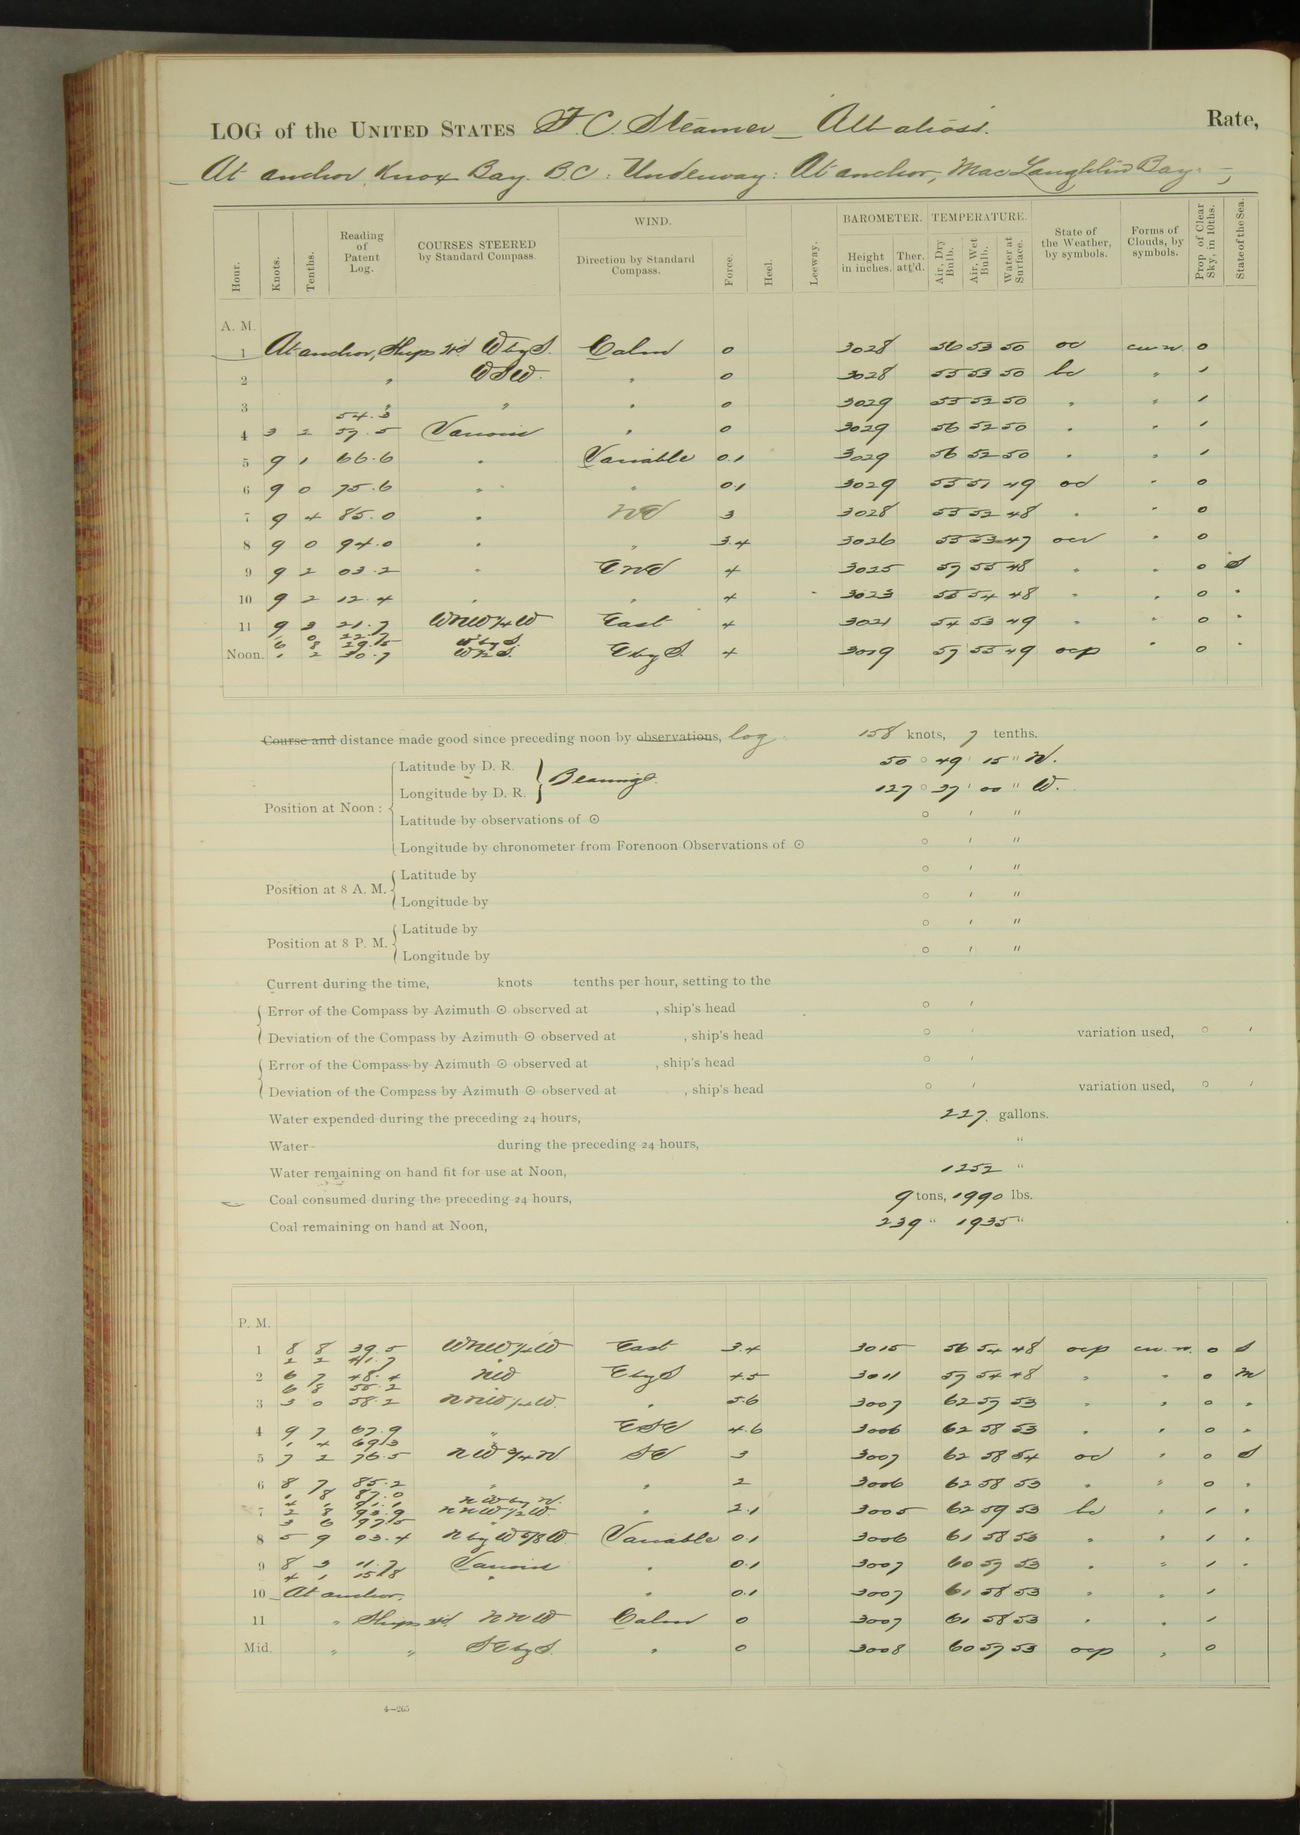 LOG of the UNITED STATES F.C. Steamer Albatross. Rate,
At anchor, Knox Bay. B.C: Underway: At anchor, MacLaughlin Bay.
Hour. Knots. Tenths. Reading of Patent Log. COURSES STEERED by Standard Compass. WIND. Direction by Standard Compass. Force. Heel. Leeway. BAROMETER. Height in inches. Ther. att'd. TEMPERATURE. Air, Dry Bulb. Air, Wet Bulb. Water at Surface. State of the Weather, by symbols. Forms of Clouds, by symbols. Prop. of Clear Sky, in 10ths. State of the Sea.
A. M.
1 At anchor, Ship's H'd W by S. Calm 0 3028 56 53 50 oc cu-n. 0
2 " WSW. " 0 3028 55 53 50 bc " 1
3 " " " 0 3029 53 52 50 " " 1
54.3
4 3 2 57.5 Various " 0 3029 56 52 50 " " 1
5 9 1 66.6 " Variable 0.1 3029 56 52 50 " " 1
6 9 0 75.6 " " 0.1 3029 55 51 49 od " 0
7 9 4 85.0 " NE 3 3028 53 52 48 " " 0
8 9 0 94.0 " " 3.4 3026 55 53 47 " 0
9 9 2 03.2 " ENE 4 3025 57 55 48 " " 0 S
10 9 2 12.4 " " 4 3023 55 54 48 " " 0 "
11 9 3 21.7 WNW 1/4 W East 4 3021 54 53 49 " " 0 "
1 0 22.7 W by S.
6 8 29.5
Noon. 1 2 30.7 W 1/2 S. E by S. 4 3019 57 55 49 ocp " 0 "
Course and distance made good since preceding noon by observations, log 158 knots, 7 tenths.
Position at Noon: Latitude by D. R. Bearings. 50 ° 49 ' 15 " N.
Longitude by D. R. 127 ° 37 ' 00 " W.
Latitude by observations of ☉ ° ' "
Longitude by chronometer from Forenoon Observations of ☉ ° ' "
Position at 8 A. M. Latitude by ° ' "
Longitude by ° ' "
Position at 8 P. M. Latitude by ° ' "
Longitude by ° ' "
Current during the time, knots tenths per hour, setting to the
Error of the Compass by Azimuth ☉ observed at , ship's head ° '
Deviation of the Compass by Azimuth ☉ observed at , ship's head ° ' variation used, ° '
Error of the Compass by Azimuth ☉ observed at , ship's head ° '
Deviation of the Compass by Azimuth ☉ observed at , ship's head ° ' variation used, ° '
Water expended during the preceding 24 hours, 227. gallons.
Water during the preceding 24 hours, "
Water remaining on hand fit for use at Noon, 1252 "
Coal consumed during the preceding 24 hours, 9 tons, 1990 lbs.
Coal remaining on hand at Noon, 239 " 1935 "
P. M.
1 8 8 39.5 WNW 1/4 W East 3.4 3015 56 54 48 ocp cu. n. 0 S
2 2 41.7
2 6 7 48.4 NW E by S 4.5 3011 57 54 48 " " 0 M
6 8 55.2
3 3 0 58.2 NNW 1/4 W. " 5.6 3007 62 57 53 " " 0 "
4 9 7 67.9 " ESE 4.6 3006 62 58 53 " " 0 "
1 4 69.3
5 7 2 76.5 NW 3/4 N SE 3 3007 62 58 54 od " 0 S
6 8 7 85.2 " " 2 3006 62 58 53 " 0 "
1 8 87.0
4 1 91.1 NW by N.
7 2 8 93.9 NNW 1/2 W. " 2.1 3005 62 59 53 bc " 1 "
3 6 97.5 "
8 5 9 03.4 N by W 5/8 W Variable 0.1 3006 61 58 53 " " 1 "
9 8 3 11.7 Various " 0.1 3007 60 57 53 " " 1 "
4 1 15.8 "
10 At anchor. " 0.1 3007 61 58 53 " " 1
11 " Ship's H'd. NNW Calm 0 3007 61 58 53 " " 1
Mid. " " SE by S. " 0 3008 60 57 53 ocp " 0
4—265